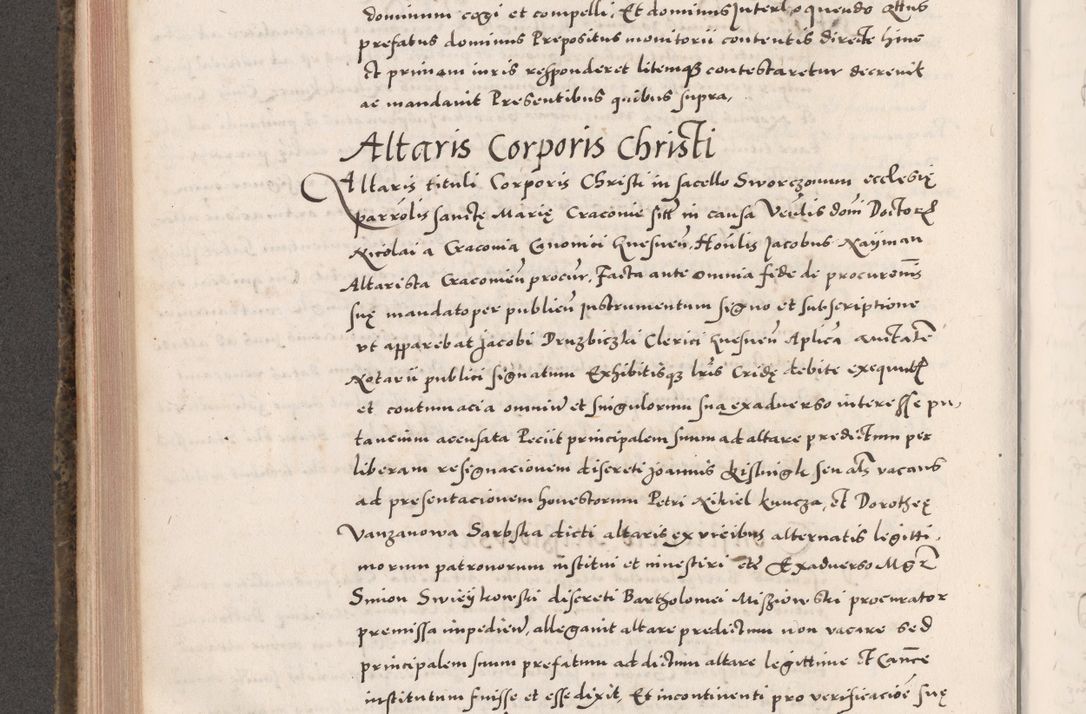 dominum cogi et compelli, Et dominus Interloquendo Attus
prefatus dominus Prepositus monitorii contentis directe hinc
Et primam iuris responderet litemq contestaretur decrevit
ac mandavit Presentibus quibus supra,
Altaris Corporis Christi
Altaris tituli Corporis Christi in sacello Sworczonum ecclesię
parrolis sanctę Marię Cracovie sitt in causa Venlis domi Doctor
Nicolai a Cracovia Canonici Gnesnen, Honlis Jacobus Nayman
Altarista Cracovien procur, Facta ante omnia fide de procuronis
suę mandato per publicu Instrumentum signo et subscriptione
vt apparebat Jacobi Druzbiczki Clerici Gnesnen Aplica auctate
Notarii publici signatum Exhibitisq lris Cridę debite exequut
et contumacia omniu et singulorum sua exadverso interesse pu,
tancium accusata Peciit principalem suum ad altare predictum per
liberam resignacionem discreti Joannis Kislingk seu als vacans
ad presentacionem honestorum Petri Nikiel kuncza, Et Dorotheę
Vanzanowa Sarbska dicti altaris ex vicibus alternatis legitti,
morum patronorum institui et investiri etc Exadverso Mgr
Simon Swieykowski discreti Bartholomei Misziowski procurator
premissa impediens, allegavit altare predictum non vacare sed
principalem suum prefatum ad dictum altare legittime Et Cance
institutum fuisse et esse dixit, Et incontinenti pro verificacioe suę